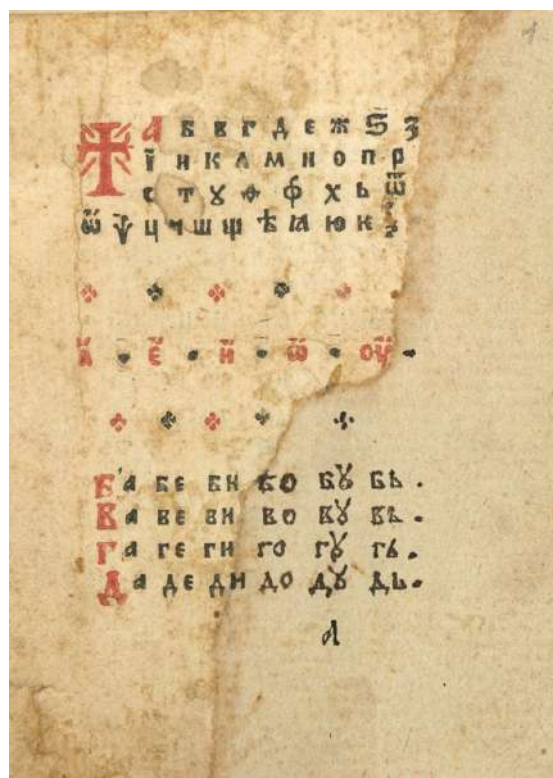 А Б В Г Д Е Ж Ѕ З
Ї И К Л М Н О П Р
С Т Ꙋ Ѳ Ф Х Ь Ѿ
Ѿ Ѱ Ц Ч Ш Щ Ѣ Ꙗ Ю К З
А · Е · И · Ѡ · ОУ ·
Ба бе би бо бꙋ бь .
Ва ве ви во вꙋ вь .
Га ге ги го гꙋ гь .
Да де ди до дꙋ дь .
А